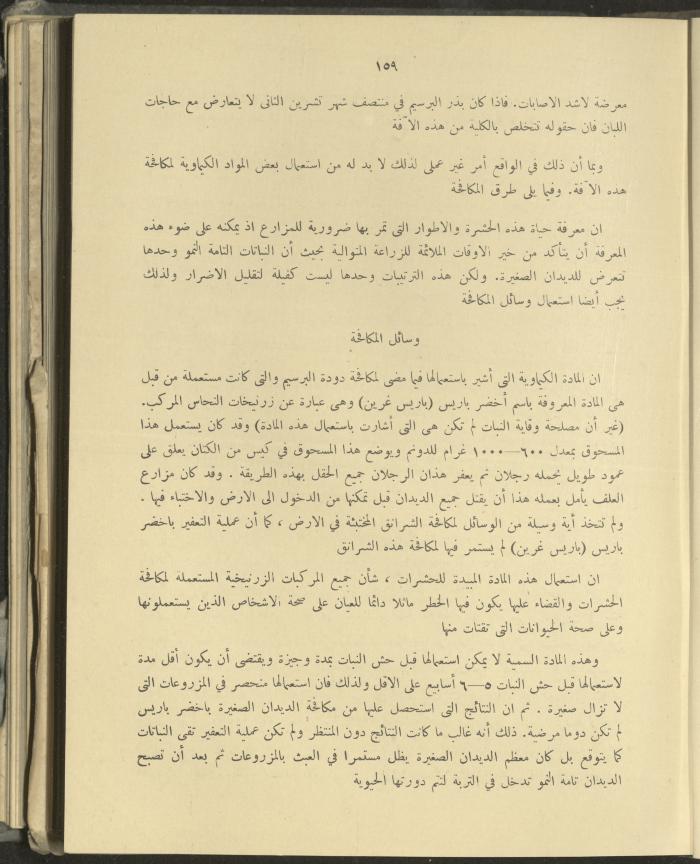 ١٥٩
معرضة لاشد الاصابات. فاذا كان بذر البرسيم في منتصف شهر تشرين الثانى لا يتعارض مع حاجات
اللبان فان حقوله تتخلص بالكلية من هذه الآفة
وبما أن ذلك في الواقع أمر غير عملى لذلك لا بد له من استعمال بعض المواد الكيماوية لمكافحة
هذه الآفة. وفيما يلى طرق المكافحة
ان معرفة حياة هذه الحشرة والاطوار التى تمر بها ضرورية للمزارع اذ يمكنه على ضوء هذه
المعرفة أن يتأكد من خير الاوقات الملائمة للزراعة المتوالية بحيث أن النباتات التامة النمو وحدها
تتعرض للديدان الصغيرة. ولكن هذه الترتيبات وحدها ليست كفيلة لتقليل الاضرار ولذلك
يجب أيضا استعمال وسائل المكافحة
وسائل المكافحة
ان المادة الكيماوية التى أشير باستعمالها فيما مضى لمكافحة دودة البرسيم والتى كانت مستعملة من قبل
هى المادة المعروفة باسم أخضر باريس (باريس غرين) وهى عبارة عن زرنيخات النحاس المركب.
(غير أن مصلحة وقاية النبات لم تكن هى التى أشارت باستعمال هذه المادة) وقد كان يستعمل هذا
المسحوق بمعدل ٦٠٠—١٠٠٠ غرام للدونم ويوضع هذا المسحوق في كيس من الكتان يعلق على
عمود طويل يحمله رجلان ثم يعفر هذان الرجلان جميع الحقل بهذه الطريقة . وقد كان مزارع
العلف يأمل بعمله هذا أن يقتل جميع الديدان قبل تمكنها من الدخول الى الارض والاختباء فيها .
ولم تتخذ أية وسيلة من الوسائل لمكافحة الشرانق المختبئة في الارض ، كما أن عملية التعفير باخضر
باريس (باريس غرين) لم يستمر فيها لمكافحة هذه الشرانق
ان استعمال هذه المادة المبيدة للحشرات ، شأن جميع المركبات الزرنيخية المستعملة لمكافحة
الحشرات والقضاء عليها يكون فيها الخطر ماثلا دائما للعيان على صحة الاشخاص الذين يستعملونها
وعلى صحة الحيوانات التى تقتات منها
وهذه المادة السمية لا يمكن استعمالها قبل حش النبات بمدة وجيزة ويقتضى أن يكون أقل مدة
لاستعمالها قبل حش النبات ٥—٦ أسابيع على الاقل ولذلك فان استعمالها منحصر في المزروعات التى
لا تزال صغيرة . ثم ان النتائج التى استحصل عليها من مكافحة الديدان الصغيرة باخضر باريس
لم تكن دوما مرضية. ذلك أنه غالب ما كانت النتائج دون المنتظر ولم تكن عملية التعفير تقى النباتات
كما يتوقع بل كان معظم الديدان الصغيرة يظل مستمرا في العبث بالمزروعات ثم بعد أن تصبح
الديدان تامة النمو تدخل في التربة لتتم دورتها الحيوية